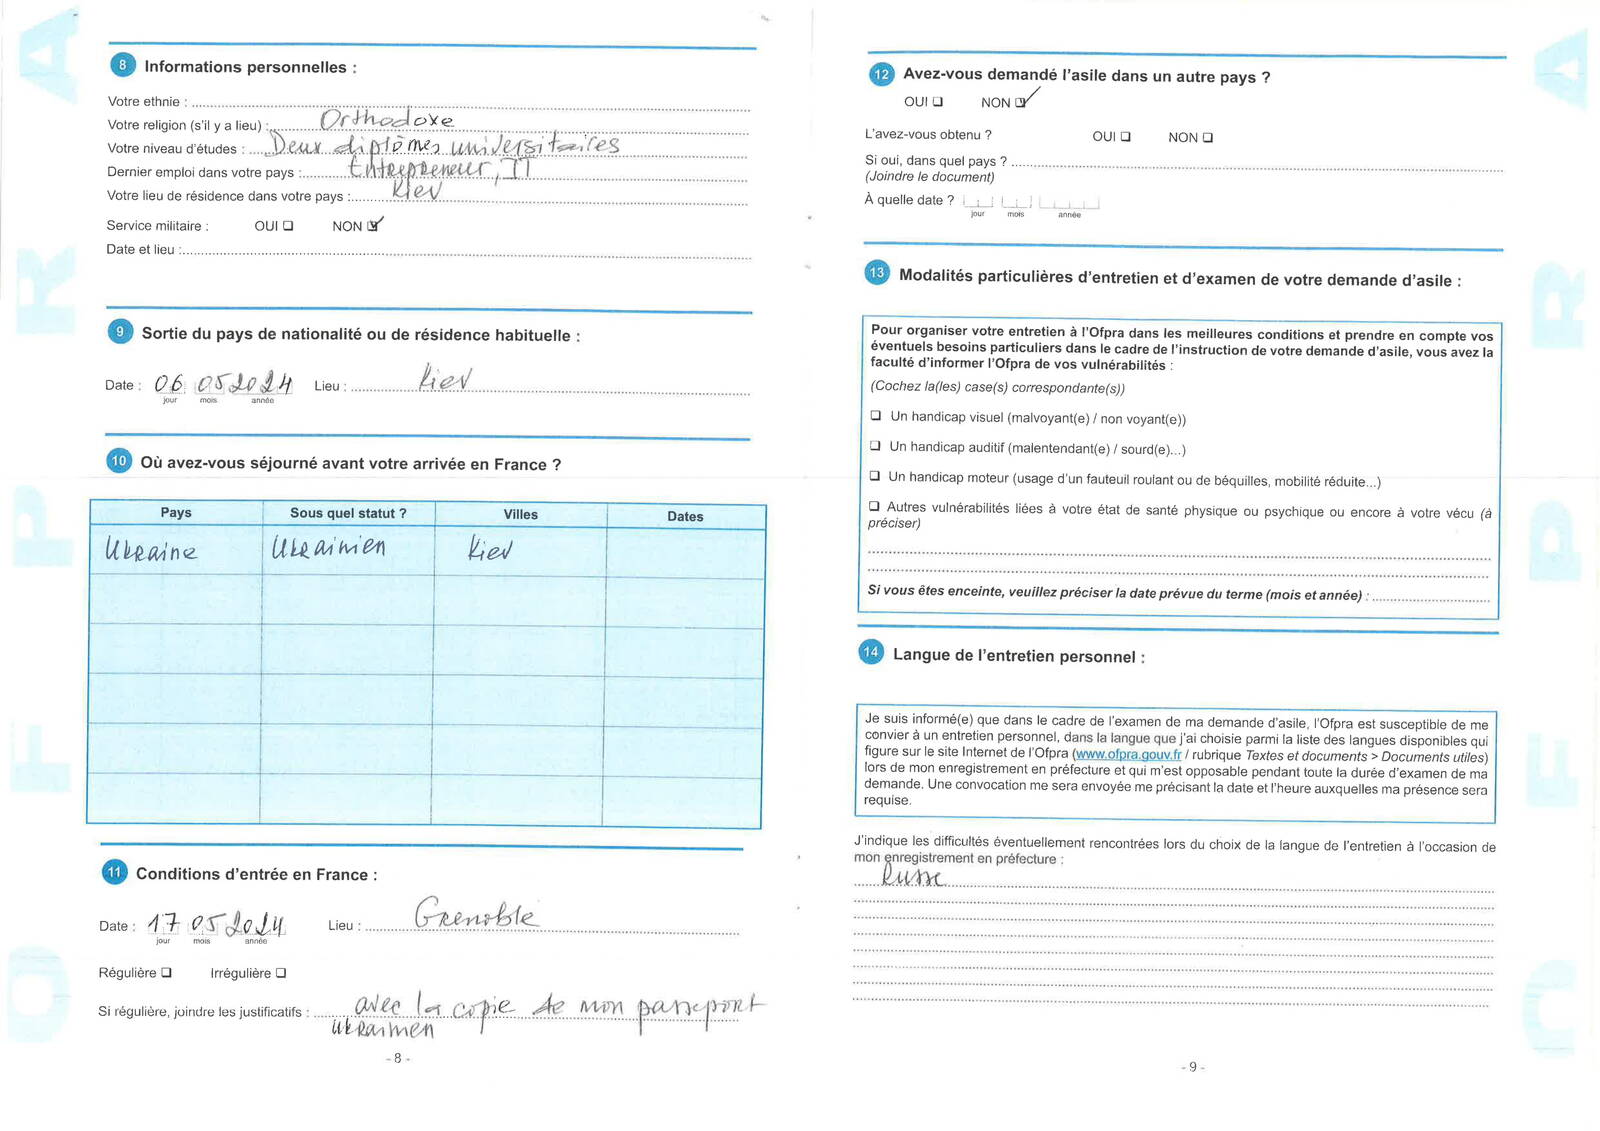 OFPRA
8 Informations personnelles :
Votre ethnie :
Votre religion (s'il y a lieu) : Orthodoxe
Votre niveau d'études : Deux diplômes universitaires
Dernier emploi dans votre pays : Entrepreneur, IT
Votre lieu de résidence dans votre pays : Kiev
Service militaire : OUI ❑ NON ☑
Date et lieu :
9 Sortie du pays de nationalité ou de résidence habituelle :
Date : 06 05 2024 Lieu : Kiev
jour mois année
10 Où avez-vous séjourné avant votre arrivée en France ?
Pays Sous quel statut ? Villes Dates
Ukraine Ukrainien Kiev
11 Conditions d'entrée en France :
Date : 17 05 2024 Lieu : Grenoble
jour mois année
Régulière ❑ Irrégulière ❑
Si régulière, joindre les justificatifs : avec la copie de mon passeport
Ukrainien
- 8 -
12 Avez-vous demandé l'asile dans un autre pays ?
OUI ❑ NON ☑
L'avez-vous obtenu ? OUI ❑ NON ❑
Si oui, dans quel pays ?
(Joindre le document)
À quelle date ?
jour mois année
13 Modalités particulières d'entretien et d'examen de votre demande d'asile :
Pour organiser votre entretien à l'Ofpra dans les meilleures conditions et prendre en compte vos
éventuels besoins particuliers dans le cadre de l'instruction de votre demande d'asile, vous avez la
faculté d'informer l'Ofpra de vos vulnérabilités :
(Cochez la(les) case(s) correspondante(s))
❑ Un handicap visuel (malvoyant(e) / non voyant(e))
❑ Un handicap auditif (malentendant(e) / sourd(e)...)
❑ Un handicap moteur (usage d'un fauteuil roulant ou de béquilles, mobilité réduite...)
❑ Autres vulnérabilités liées à votre état de santé physique ou psychique ou encore à votre vécu (à
préciser)
Si vous êtes enceinte, veuillez préciser la date prévue du terme (mois et année) :
14 Langue de l'entretien personnel :
Je suis informé(e) que dans le cadre de l'examen de ma demande d'asile, l'Ofpra est susceptible de me
convier à un entretien personnel, dans la langue que j'ai choisie parmi la liste des langues disponibles qui
figure sur le site Internet de l'Ofpra (www.ofpra.gouv.fr / rubrique Textes et documents > Documents utiles)
lors de mon enregistrement en préfecture et qui m'est opposable pendant toute la durée d'examen de ma
demande. Une convocation me sera envoyée me précisant la date et l'heure auxquelles ma présence sera
requise.
J'indique les difficultés éventuellement rencontrées lors du choix de la langue de l'entretien à l'occasion de
mon enregistrement en préfecture :
Russe
- 9 -
OFPRA